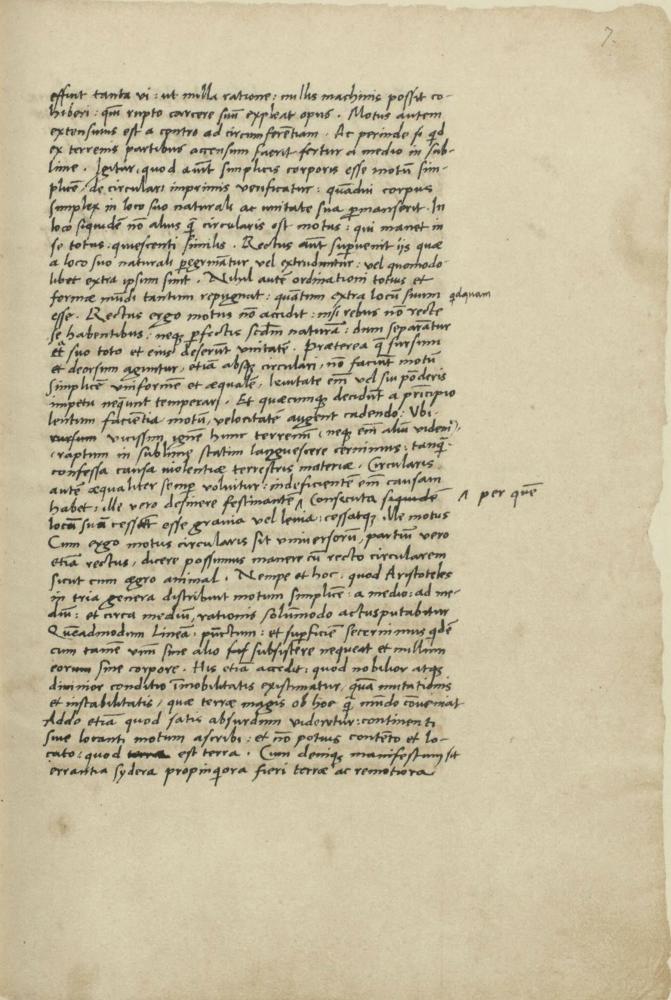 7.
efficit tanta vi: ut nulla ratione: nullis machinis possit co-
hiberi: quī rupto carcere suū expleat opus. Motus autem
extensivus est a centro ad circumferentiam. Ac perinde si qd
ex terrenis partibus accensum fuerit fertur a medio in sub-
lime. Igitur quod aiūt simplicis corporis esse motū sim-
plicē, de circulari imprimis verificatur: quādiu corpus
simplex in loco suo naturali ac unitate sua p̄manserit. In
loco siquidē nō alius q̄ circularis est motus: qui manet in
se totus: quiescenti similis. Rectus aūt sup̄venit iis quae
a loco suo naturali p̄egrinātur vel extruduntur: vel quomodo-
libet extra ipsum sunt. Nihil autē ordinationi totius et
formae mūdi tantum repugnat: quātum extra locū suum qdquam
esse. Rectus ergo motus nō accidit: nisi rebus nō recte
se habentibus: neqʒ p̄fectis scd̄m naturā: dum separātur
a suo toto et eius deserūt unitatē. Praeterea q̄ sursum
et deorsum aguntur, etiā absqʒ circulari, nō faciūt motū
simplicē uniformē et aequalē, levitate em̄ vel sui pōderis
impetu neq̄unt temperari. Et quaecumqʒ decidūt a pricipio
lentum facientia motū, velocitatē augent cadendo. Ubi
rursum vicissim ignē hunc terrenū (neqʒ em̄ aliū videm9)
raptum in sublime statim languescere cernimus: tanq̄
confessa causa violentiae terrestris materiae. Circularis
autē aequaliter semp̄ volvitur: indeficientē em̄ causam
habet: ille vero desinere festinantē ^ Consecuta siquidē ^ per quē
locū suū cessāt esse gravia vel levia: cessatqʒ ille motus
Cum ergo motus circularis sit universorū, partiū vero
etiā rectus, dicere possumus manere cū recto circularem
sicut cum aegro animal. Nempe et hoc: quod Aristoteles
in tria genera distribuit motum simplicē: a medio: ad me-
diū: et circa mediū, rationis solūmodo actus putabitur
Quēadmodum lineā: pūctum: et sup̄ficiē secernimus qdē
cum tamē unū sine alio subsistere nequeat et nullum
eorum sine corpore. His etiā accedit: quod nobilior atqʒ
divinior conditio īmobilitatis existimatur, quā mutationis
et instabilitatis, quae terrae magis ob hoc q̄ mūdo cōveniat
Addo etiā quod satis absurdum videretur: continenti
sive locanti motum ascribi: et nō potius contēto et lo-
cato: quod est terra. Cum deniqʒ manifestum sit
errantia sydera propinquiora fieri terrae ac remotiora